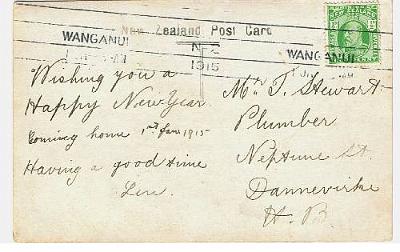 New Zealand Post Card
WANGANUI
1915
WANGANUI
Wishing you a
Happy New Year
Coming home 1st Jan 1915
Having a good time
Mr T. Stewart
Plumber
Neptune St.
Dannevirke
H. B.